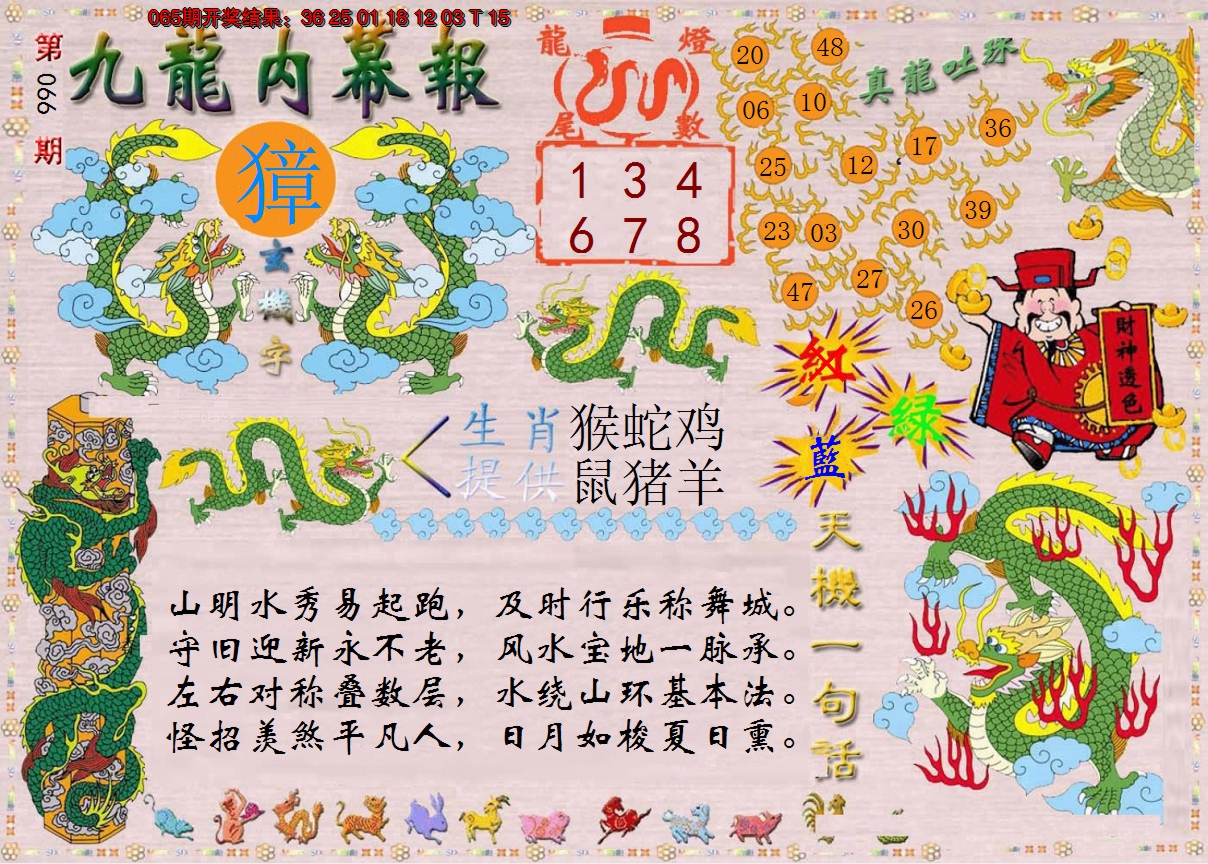 065期开奖结果：36 25 01 18 12 03 T 15
第
066
期
九龍内幕報
獐
玄
機
字
龍 燈
尾 數
1 3 4
6 7 8
真龍吐珠
20 48
06 10
25 12 17 36
23 03 30 39
47 27 26
財神透色
紅
緑
藍
生肖 猴蛇鸡
提供 鼠猪羊
天機一句話
山明水秀易起跑，及时行乐称舞城。
守旧迎新永不老，风水宝地一脉承。
左右对称叠数层，水绕山环基本法。
怪招羡煞平凡人，日月如梭夏日熏。